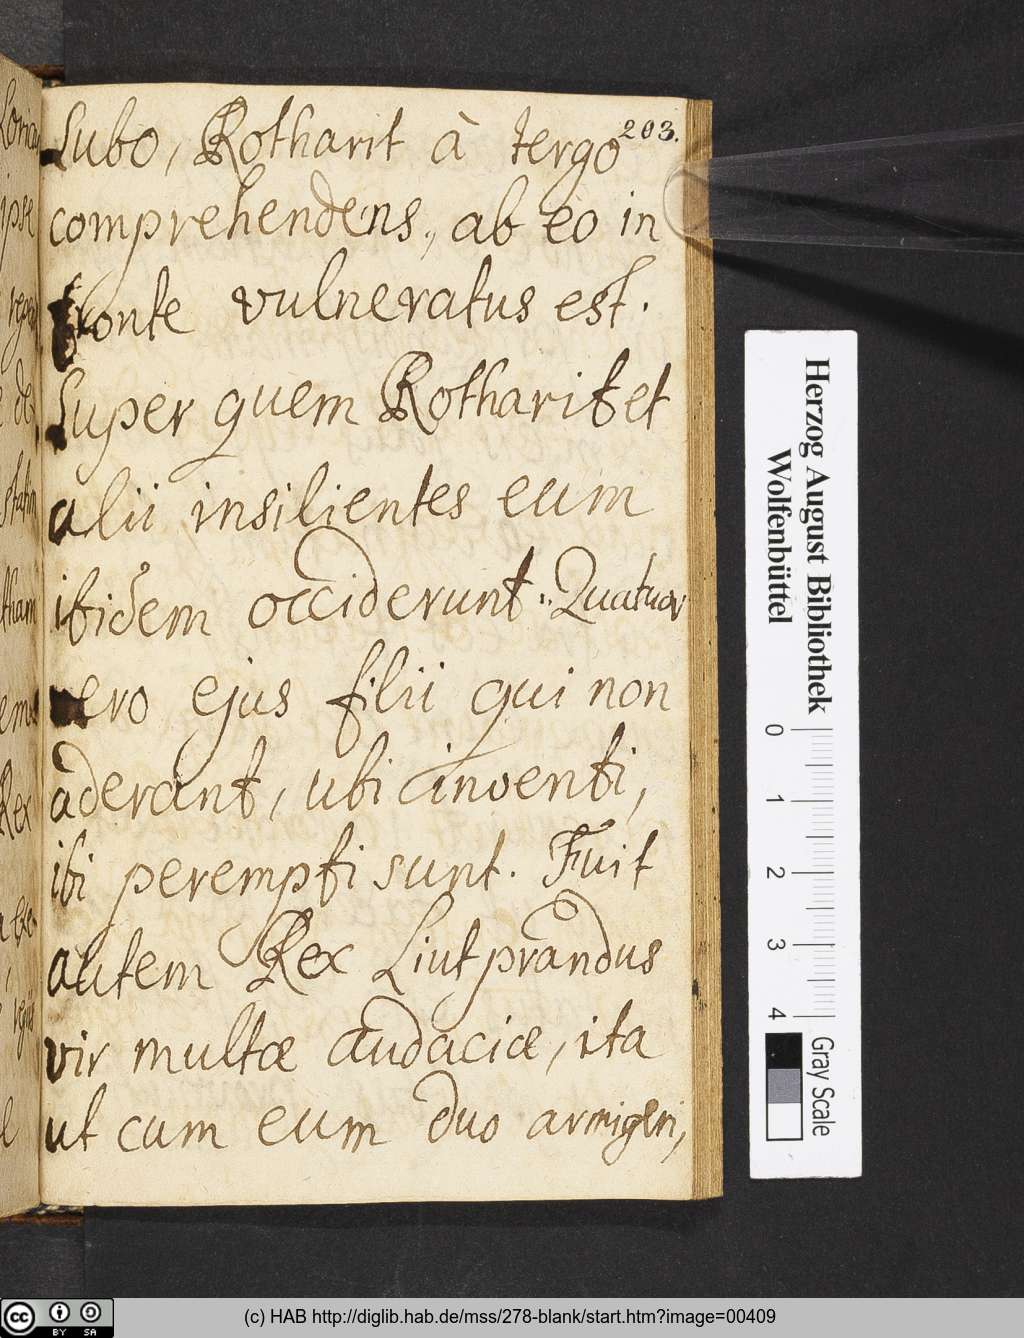 203.
Subo, Rotharit à tergo
comprehendens, ab eo in
fronte vulneratus est.
Super quem Rotharit et
alii insilientes eum
ibidem occiderunt. Quatuor
vero ejus filii qui non
aderant, ubi inventi,
ibi perempti sunt. Fuit
autem Rex Liutprandus
vir multæ audaciæ, ita
ut cum eum duo armigeri,
Herzog August Bibliothek
Wolfenbüttel
0 1 2 3 4
Gray Scale
(c) HAB http://diglib.hab.de/mss/278-blank/start.htm?image=00409
cc BY SA